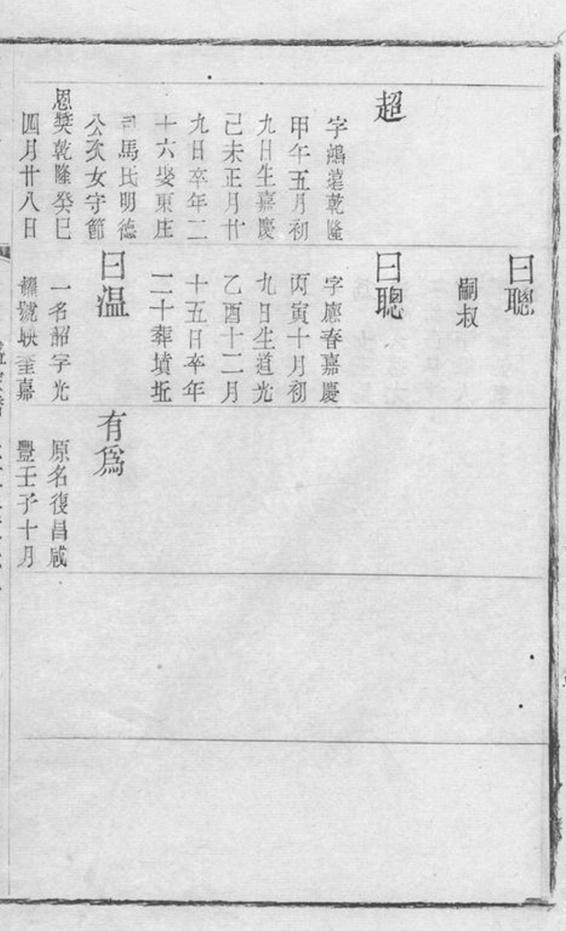 超
字鴻藻乾隆
甲午五月初
九日生嘉慶
己未正月廿
九日卒年二
十六娶東庄
司馬氏明德
公次女守節
恩奬乾隆癸巳
四月廿八日
曰聰
嗣叔
曰聰
字應春嘉慶
丙寅十月初
九日生道光
乙酉十二月
十五日卒年
二十葬墳坵
曰溫
一名韶字光
號映奎嘉
有爲
原名復昌咸
豐壬子十月